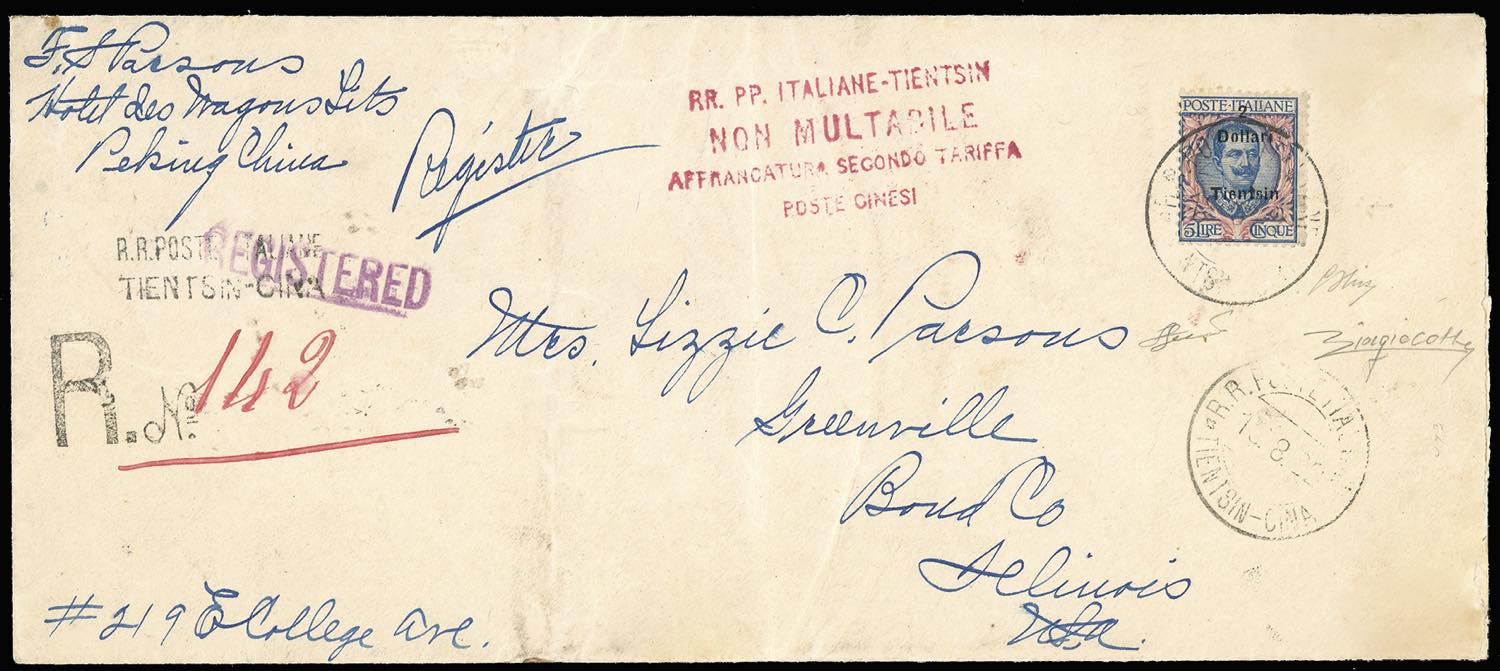 F. S Parsons
Hotel des Wagons Lits
Peking China
Register
RR. PP. ITALIANE-TIENTSIN
NON MULTABILE
AFFRANCATURA SECONDO TARIFFA
POSTE CINESI
POSTE·ITALIANE
2
Dollari
Tientsin
5 LIRE CINQUE
R.R. POSTE ITALIANE
TIENTSIN-CINA
REGISTERED
R. No 142
Mrs. Lizzie C. Parsons
Greenville
Bond Co
Illinois
USA.
R.R. POSTE ITALIANE
TIENTSIN-CINA
#219 E College Ave.